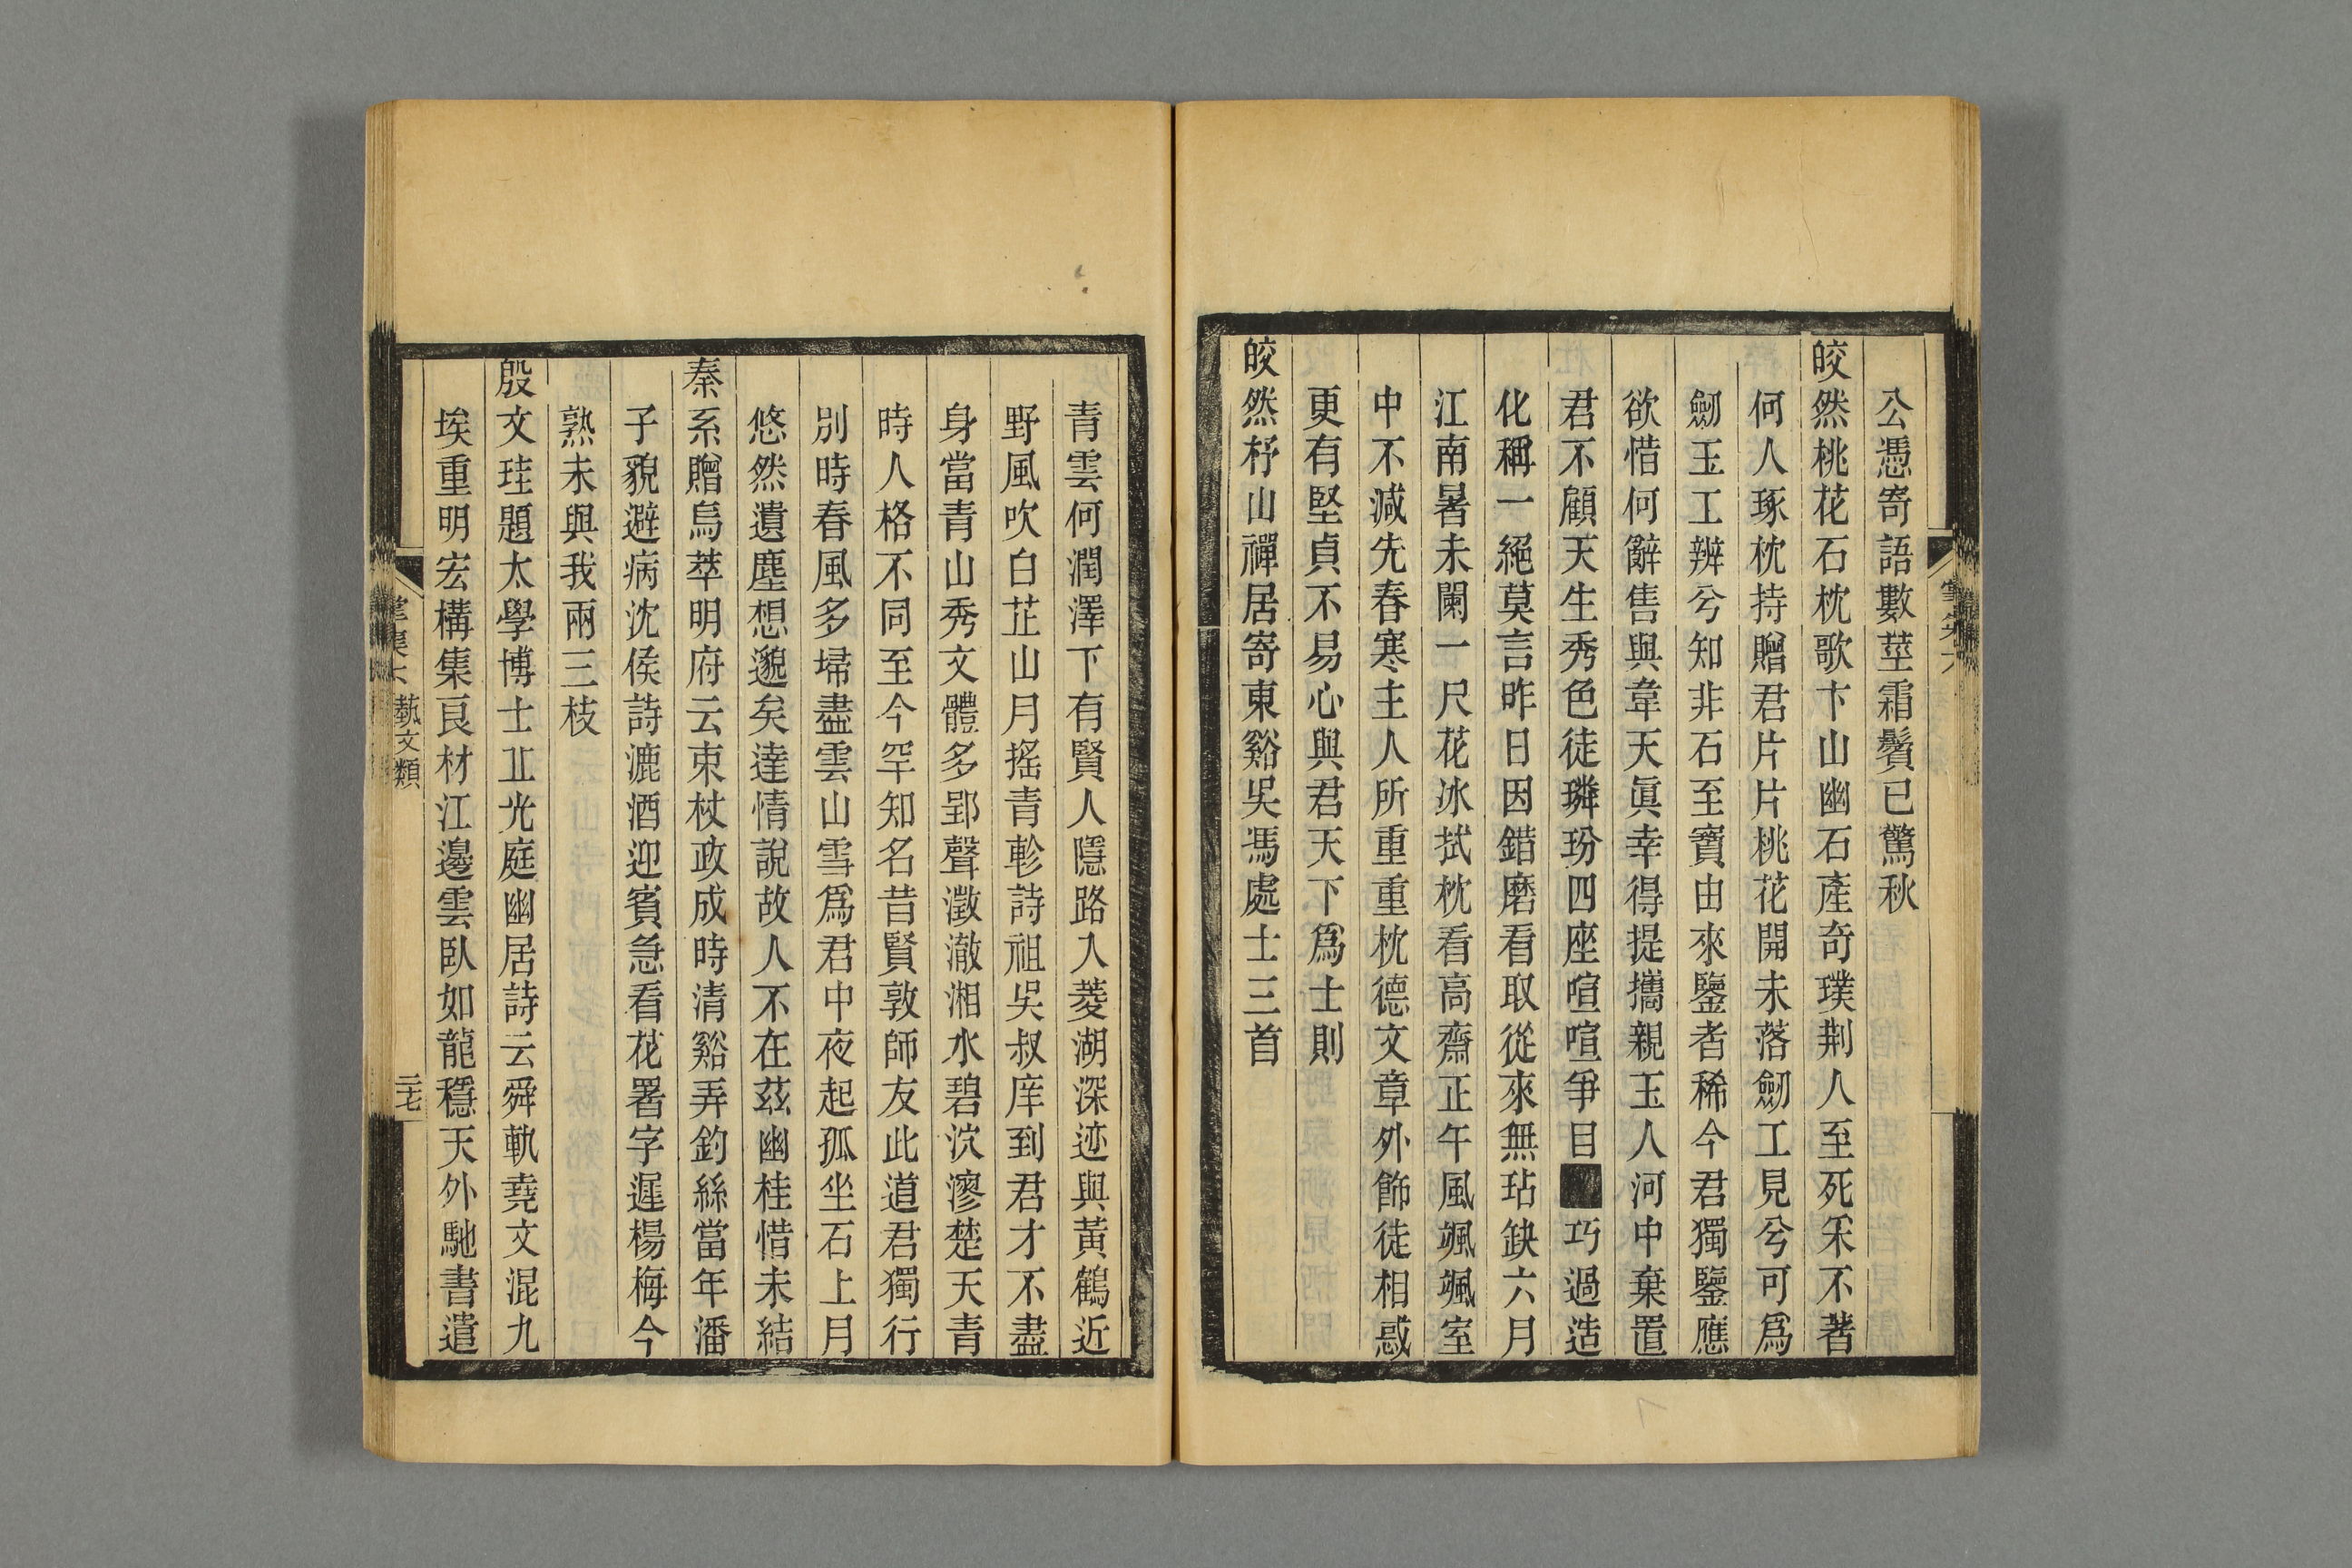 公憑寄語數莖霜鬢已驚秋
皎然桃花石枕歌卞山幽石產奇璞荆人至死采不著
何人琢枕持贈君片片桃花開未落劒工見兮可爲
劒玉工辨兮知非石至寶由來鑒者稀今君獨鑒應
欲惜何辭售與韋天眞幸得提攜親玉人河中棄置
君不顧天生秀色徒璘玢四座喧喧爭目巧過造
化稱一絕莫言昨日因錯磨看取從來無玷缺六月
江南暑未闌一尺花冰拭枕看高齋正午風颯颯室
中不減先春寒主人所重重枕德文章外飾徒相惑
更有堅貞不易心與君天下爲士則
皎然杼山禪居寄東谿吳馮處士三首
青雲何潤澤下有賢人隱路入菱湖深迹與黃鶴近
野風吹白芷山月搖青軫詩祖吳叔庠到君才不盡
身當青山秀文體多郢聲澂澈湘水碧泬漻楚天青
時人格不同至今罕知名昔賢敦師友此道君獨行
別時春風多埽盡雲山雪爲君中夜起孤坐石上月
悠然遺塵想邈矣達情說故人不在茲幽桂惜未結
秦系贈烏萃明府云束杖政成時清谿弄釣絲當年潘
子貌避病沈侯詩漉酒迎賓急看花署字遲楊梅今
熟未與我兩三枝
殷文珪題太學博士丘光庭幽居詩云舜軌堯文混九
埃重明宏構集良材江邊雲臥如龍穩天外馳書遣
埶文類
二七